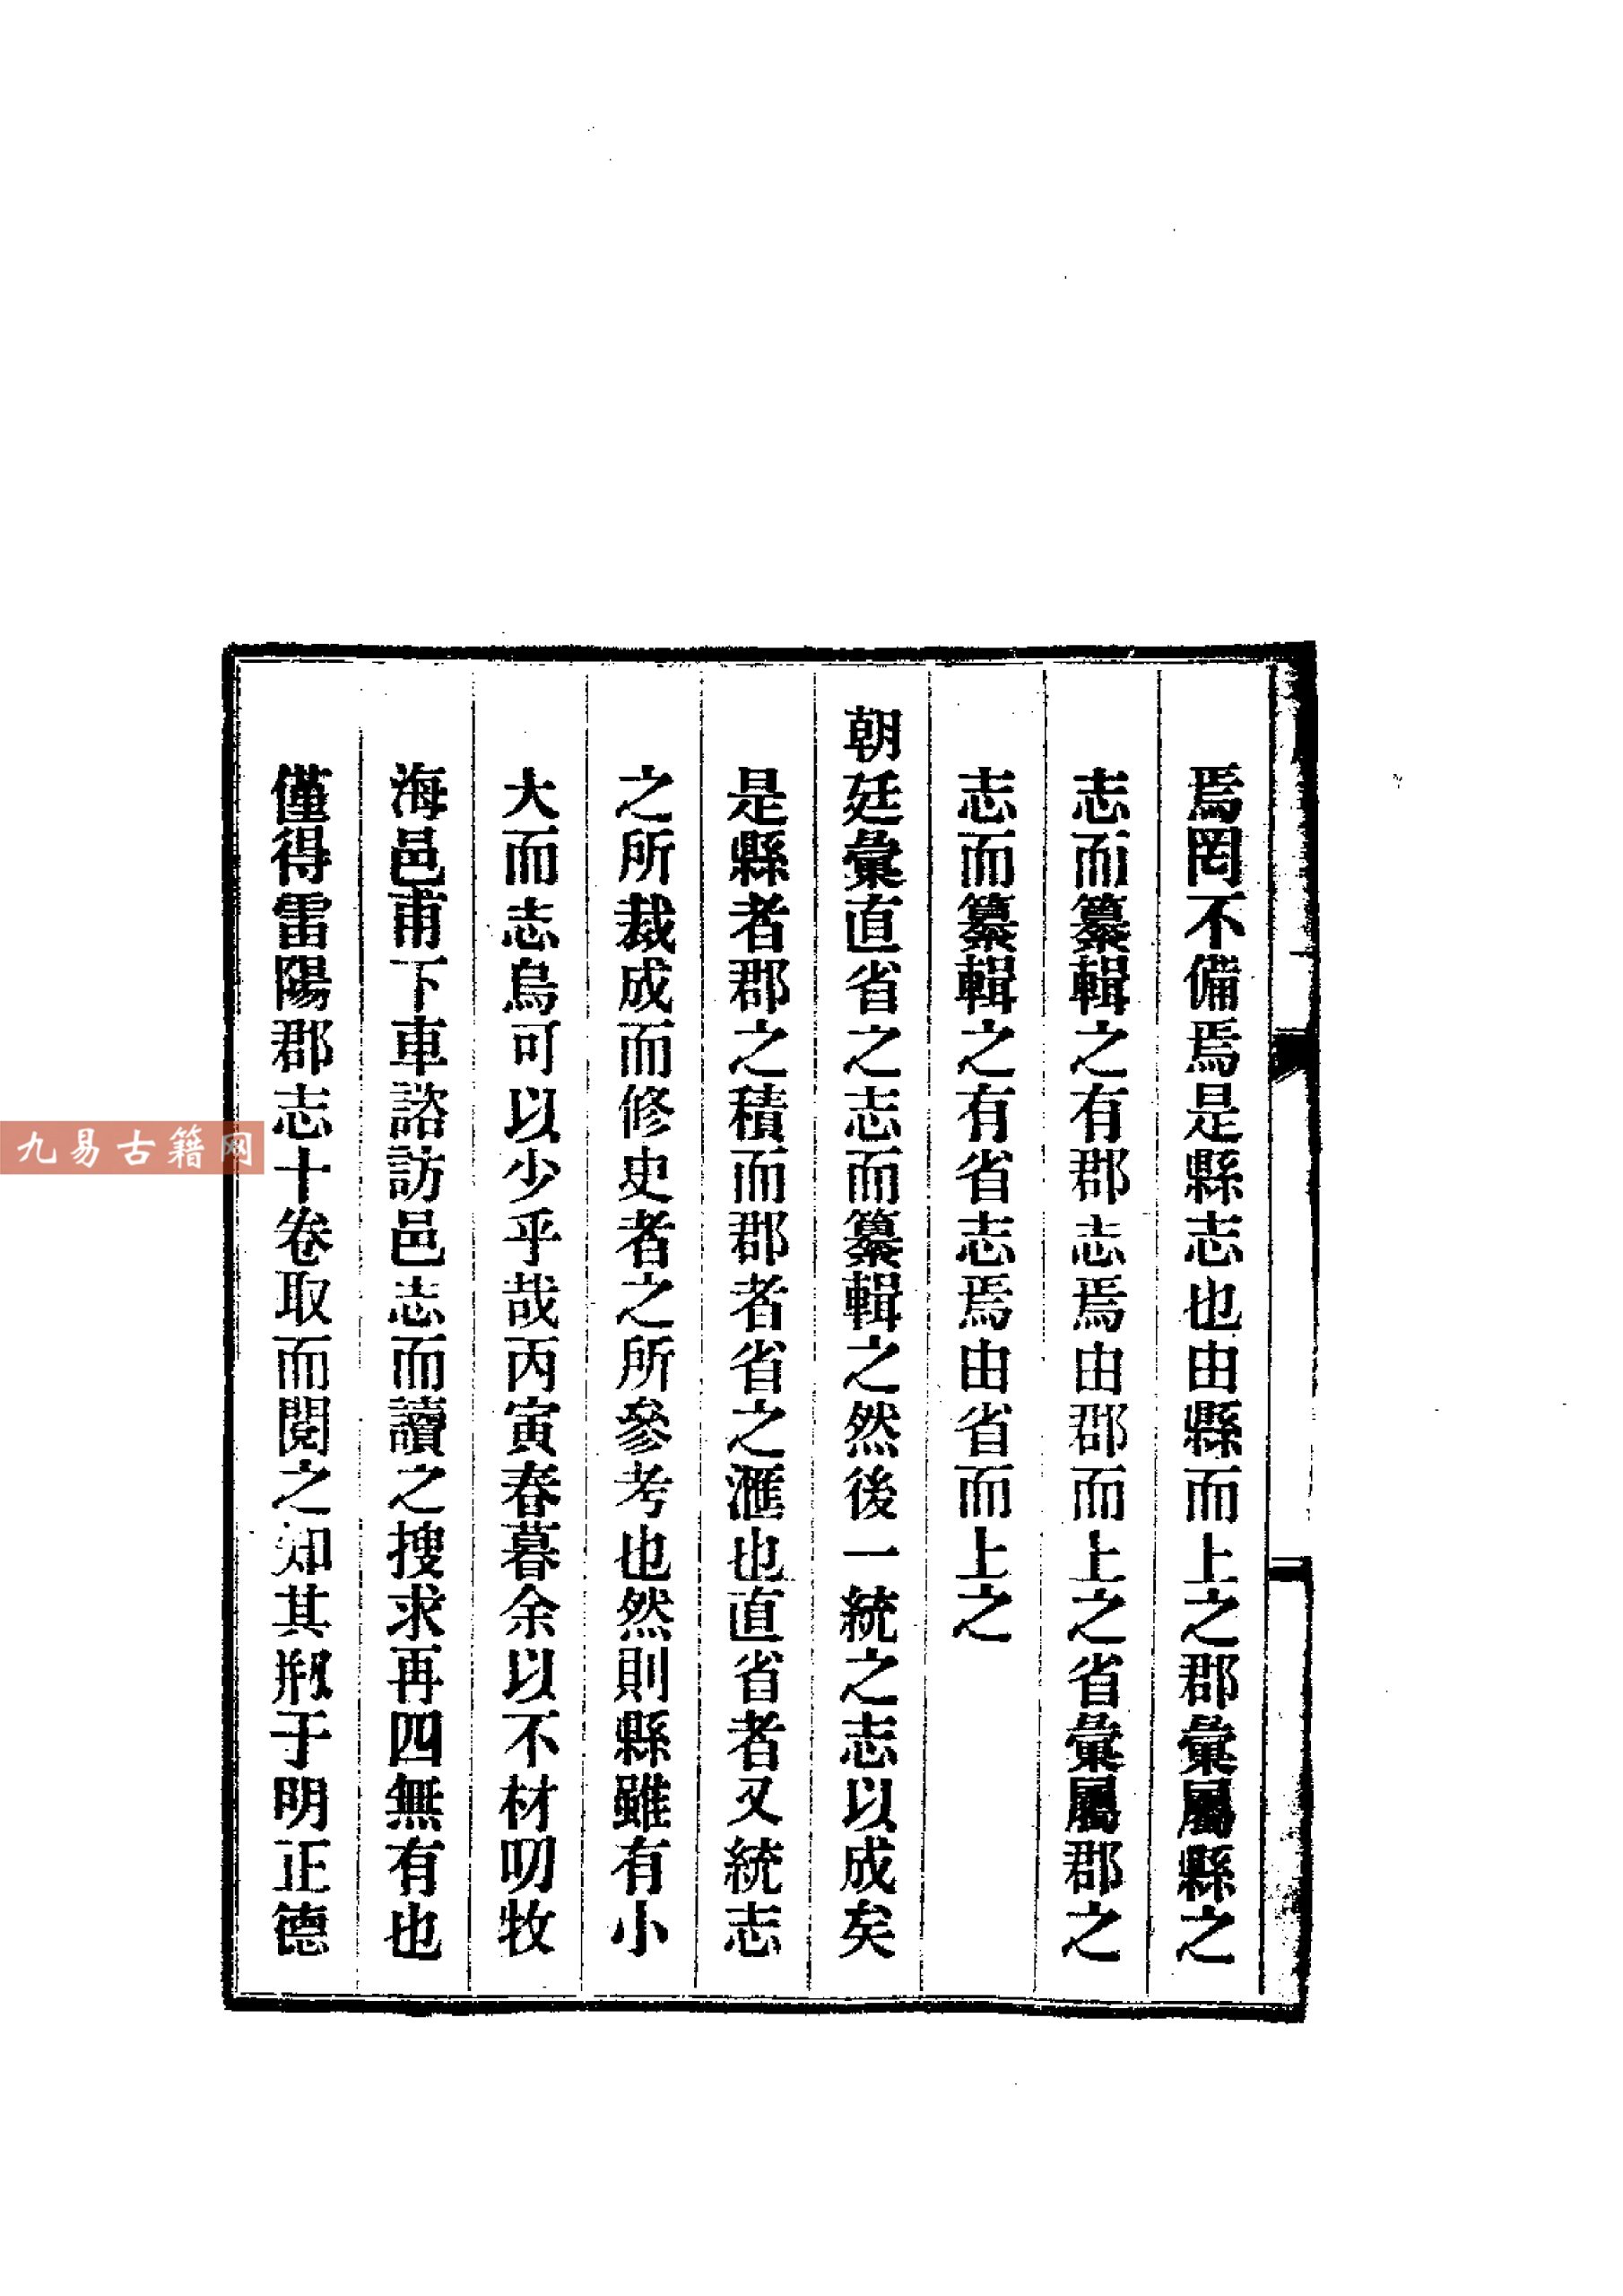 焉罔不備焉是縣志也由縣而上之郡彙屬縣之
志而纂輯之有郡志焉由郡而上之省彙屬郡之
志而纂輯之有省志焉由省而上之
朝廷彙直省之志而纂輯之然後一統之志以成矣
是縣者郡之積而郡者省之滙也直省者又統志
之所裁成而修史者之所參考也然則縣雖有小
大而志烏可以少乎哉丙寅春暮余以不材叨牧
海邑甫下車諮訪邑志而讀之搜求再四無有也
僅得雷陽郡志十卷取而閱之知其剏于明正德
九易古籍网